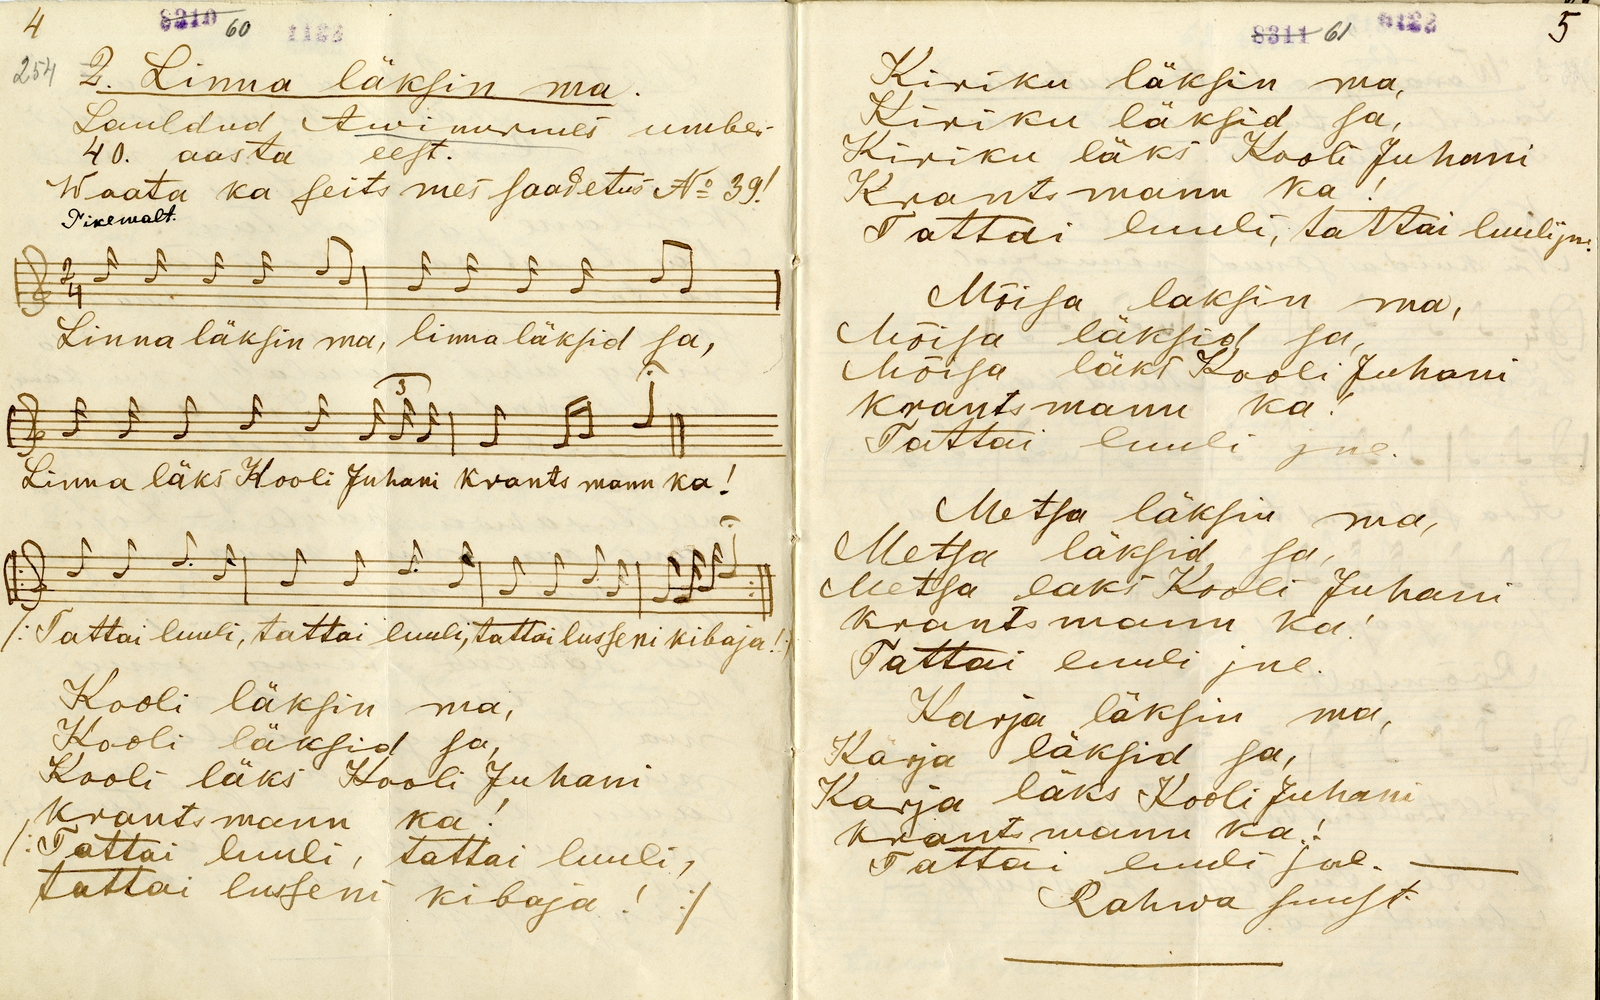 4
8310 60 1123
254 2. Linna läksin ma.
Lauldud Awinurmes umbes
40. aasta eest.
Waata ka seitsmes saadetus № 39!
Pikemalt.
2/4
Linna läksin ma, linna läksid sa,
3
Linna läks Kooli Juhani krantsmann ka!
/: Tattai luuli, tattai luuli, tattai lusseni kibaja! :/
Kooli läksin ma,
Kooli läksid sa,
Kooli läks Kooli Juhani
krantsmann ka!
/: Tattai luuli, tattai luuli,
tattai lusseni kibaja! :/
8311 61 5
Kiriku läksin ma,
Kiriku läksid sa,
Kiriku läks Kooli Juhani
Krantsmann ka!
Tattai luuli, tattai luuli jne.
Mõisa laksin ma,
Mõisa läksid sa,
Mõisa läks Kooli Juhani
krantsmann ka!
Tattai luuli jne.
Metsa läksin ma,
Metsa läksid sa,
Metsa laks Kooli Juhani
krantsmann ka!
Tattai luuli jne.
Karja läksin ma,
Karja läksid sa,
Karja läks Kooli Juhani
krantsmann ka!
Tattai luuli jne.
Rahwa suust.